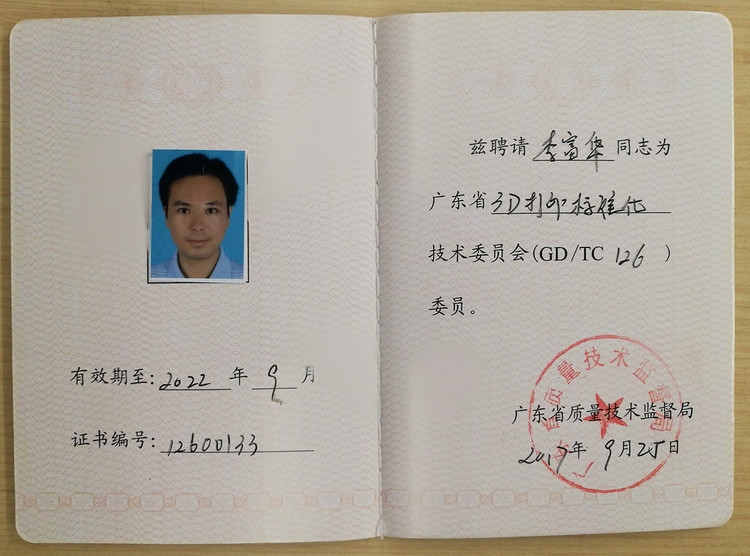 有效期至:2022年9月
证书编号:12600133
兹聘请李富华同志为
广东省3D打印标准化
技术委员会(GD/TC 126 )
委员。
广东省质量技术监督局
广东省质量技术监督局
2017年9月25日